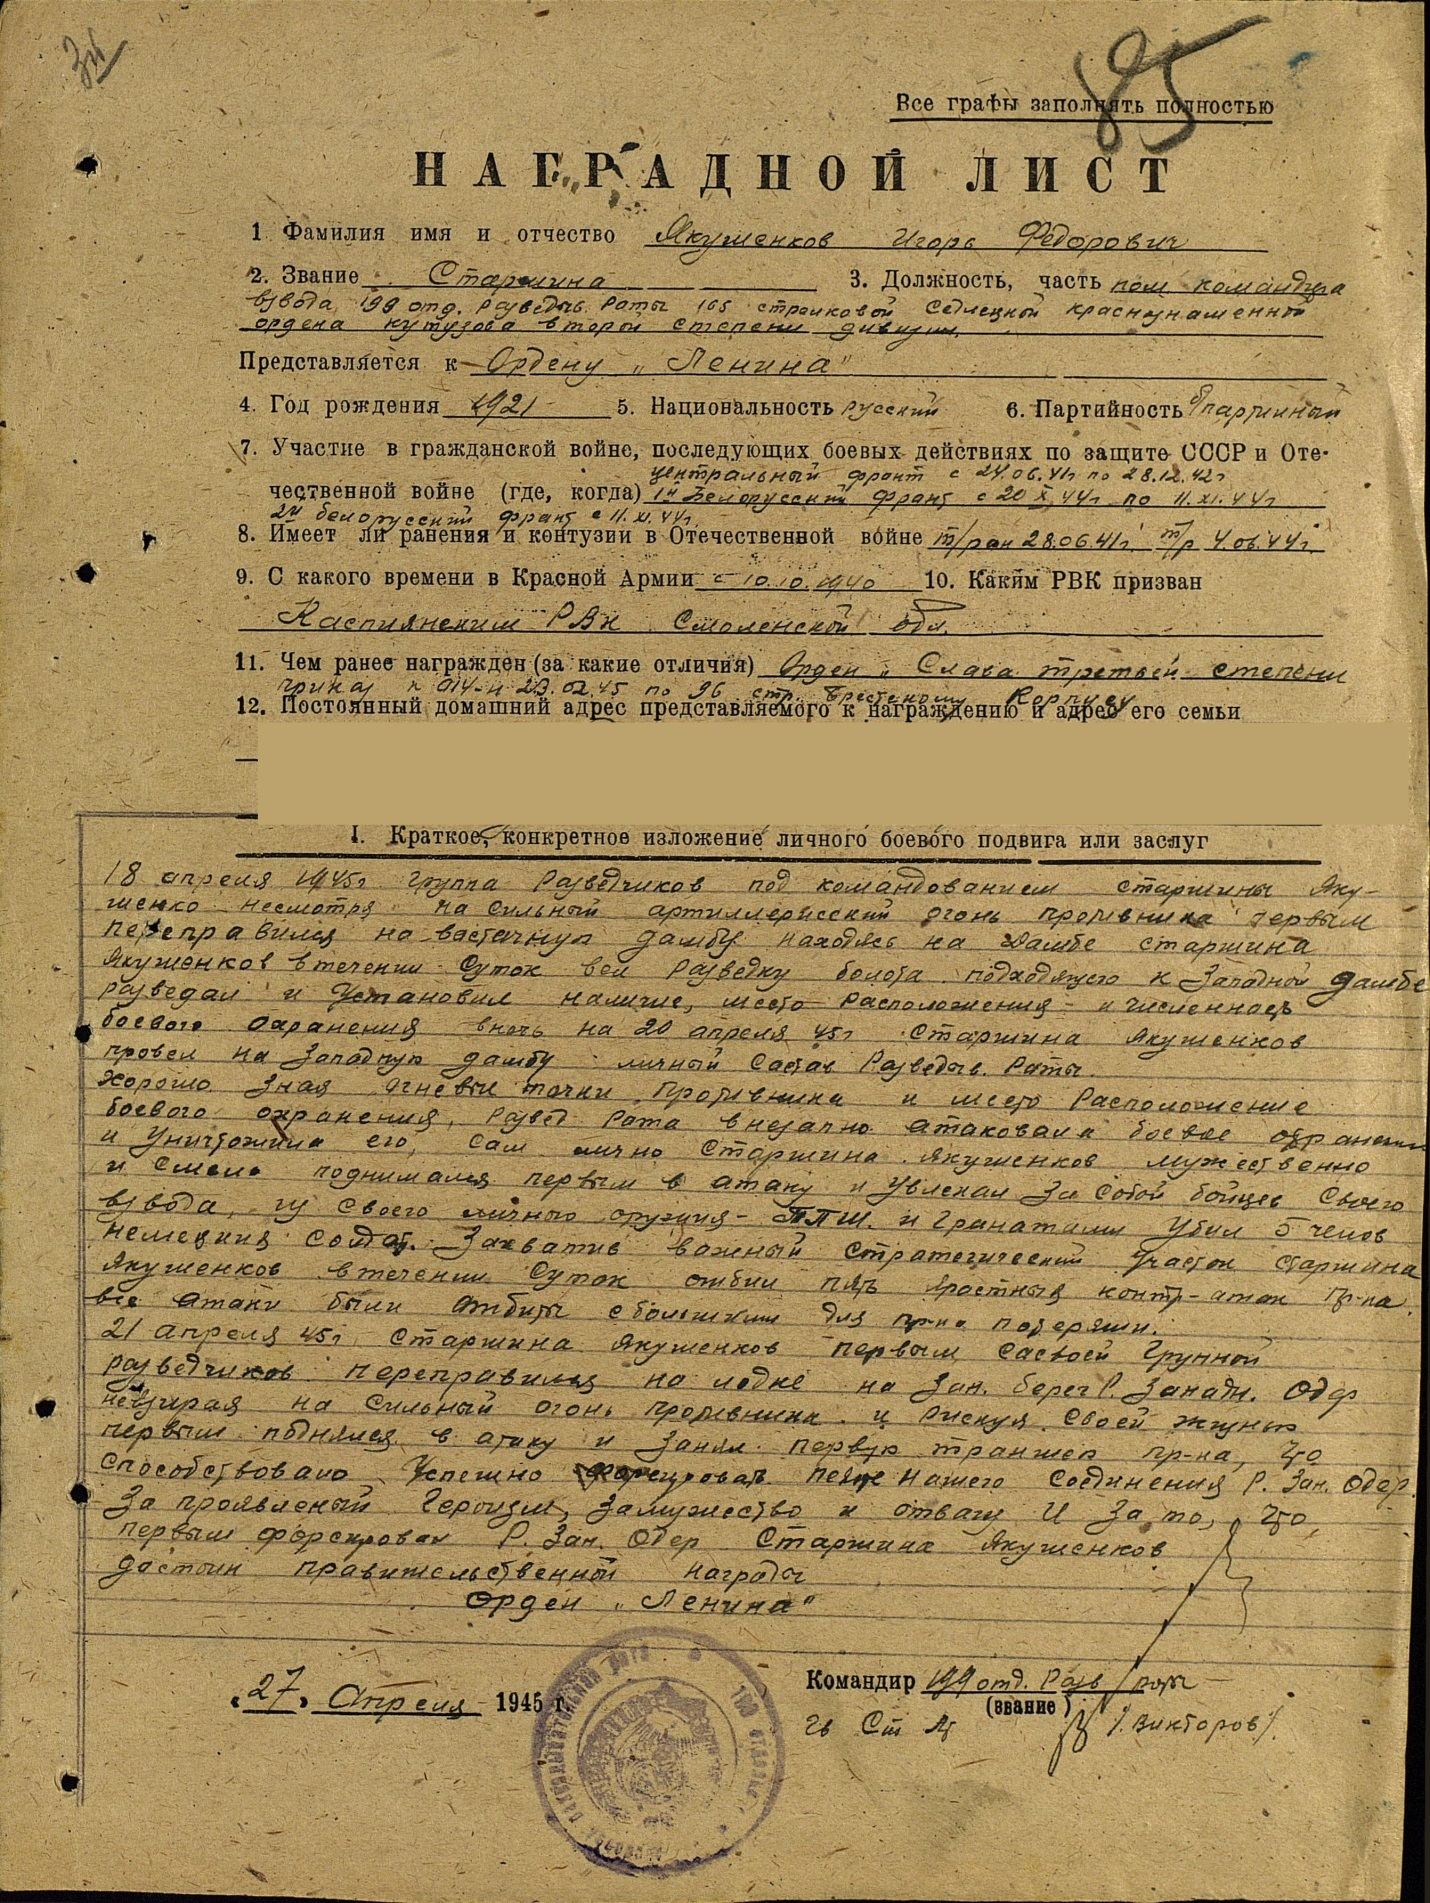 85
Все графы заполнять полностью
НАГРАДНОЙ ЛИСТ
1 Фамилия имя и отчество Якушенков Игорь Федорович
2. Звание Старшина 3. Должность, часть пом командира
взвода 199 отд. Разведыв. Роты 165 стрелковой Седлецкой краснознаменной
ордена кутузова второй степени дивизии.
Представляется к Ордену „Ленина"
4. Год рождения 1921 5. Национальность русский 6. Партийность б/партийный
7. Участие в гражданской войне, последующих боевых действиях по защите СССР и Оте-
центральный фронт с 24.06.41г по 28.12.42г
чественной войне (где, когда) 1й Белорусский фронт с 20 X 44г по 11.XI.44г
2й белорусский фронт с 11.XI.44г.
8. Имеет ли ранения и контузии в Отечественной войне т/ран 28.06.41г. т/р 4.06.44г.
9. С какого времени в Красной Армии с 10.10.1940 10. Каким РВК призван
Касплянским РВК Смоленской обл.
11. Чем ранее награжден (за какие отличия) Орден „Слава третьей степени
приказ N 014-н 23.02.45 по 96 стр. Брестскому Корпусу
12. Постоянный домашний адрес представляемого к награждению и адрес его семьи
I. Краткое, конкретное изложение личного боевого подвига или заслуг
18 апреля 1945г группа Разведчиков под командованием старшины Яку-
шенко несмотря на сильный артиллерисский огонь противника первым
переправился на восточную дамбу находясь на дамбе старшина
Якушенков втечении суток вел Разведку болота подходящего к Западной дамбе
разведал и Установил наличие, место Расположения и численность
боевого охранения вночь на 20 апреля 45г Старшина Якушенков
провел на Западную дамбу личный Состав Разведыв. Роты.
Хорошо Зная огневые точки Противника и место Расположение
боевого охранения, Развед Рота внезапно атаковала боевое охранение
и Уничтожила его, сам лично Старшина Якушенков мужественно
и Смело поднимался первым в атаку и Увлекал За собой бойцев Своего
взвода, из Своего личного оружия - ППШ. и Гранатами Убил 5 челов
немецких солдат. Захватив важный стратегический Участок старшина
Якушенков втечении Суток отбил пять яростных контр-атак пр-ка.
все атаки были отбиты сбольшими для пр-ка потерями.
21 апреля 45г Старшина Якушенков первым сасвоей Группой
разведчиков переправился на лодке на Зап. берег Р. Западн. Одер
невзирая на Сильный огонь противника и Рискуя Своей жизнью
первым поднялся в атаку и Занял первую траншею пр-ка, что
способствовало Успешно форсировать нашего Соединения Р. Зап. Одер.
За проявленый Героизм, Замужество и отвагу И За то, что,
первым форсировал Р. Зап. Одер Старшина Якушенков
достоин правительственной награды
Орден „Ленина"
„27" Апреля 1945 г.
Командир 199 отд. Разв / роты
(звание)
Гв Ст Лт /Викторов/